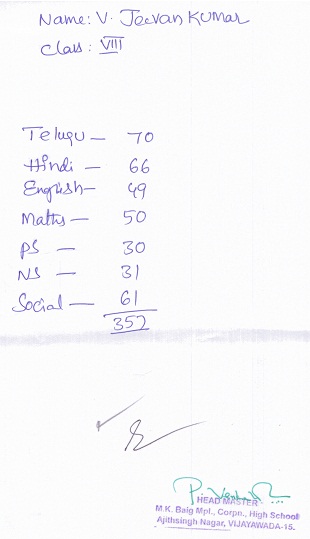 Name: V. Jeevan Kumar
Class: VIII
Telugu — 70
Hindi — 66
English — 49
Maths — 50
PS — 30
NS — 31
Social — 61
352
HEAD MASTER
M.K. Baig Mpl., Corpn., High School
Ajithsingh Nagar, VIJAYAWADA-15.